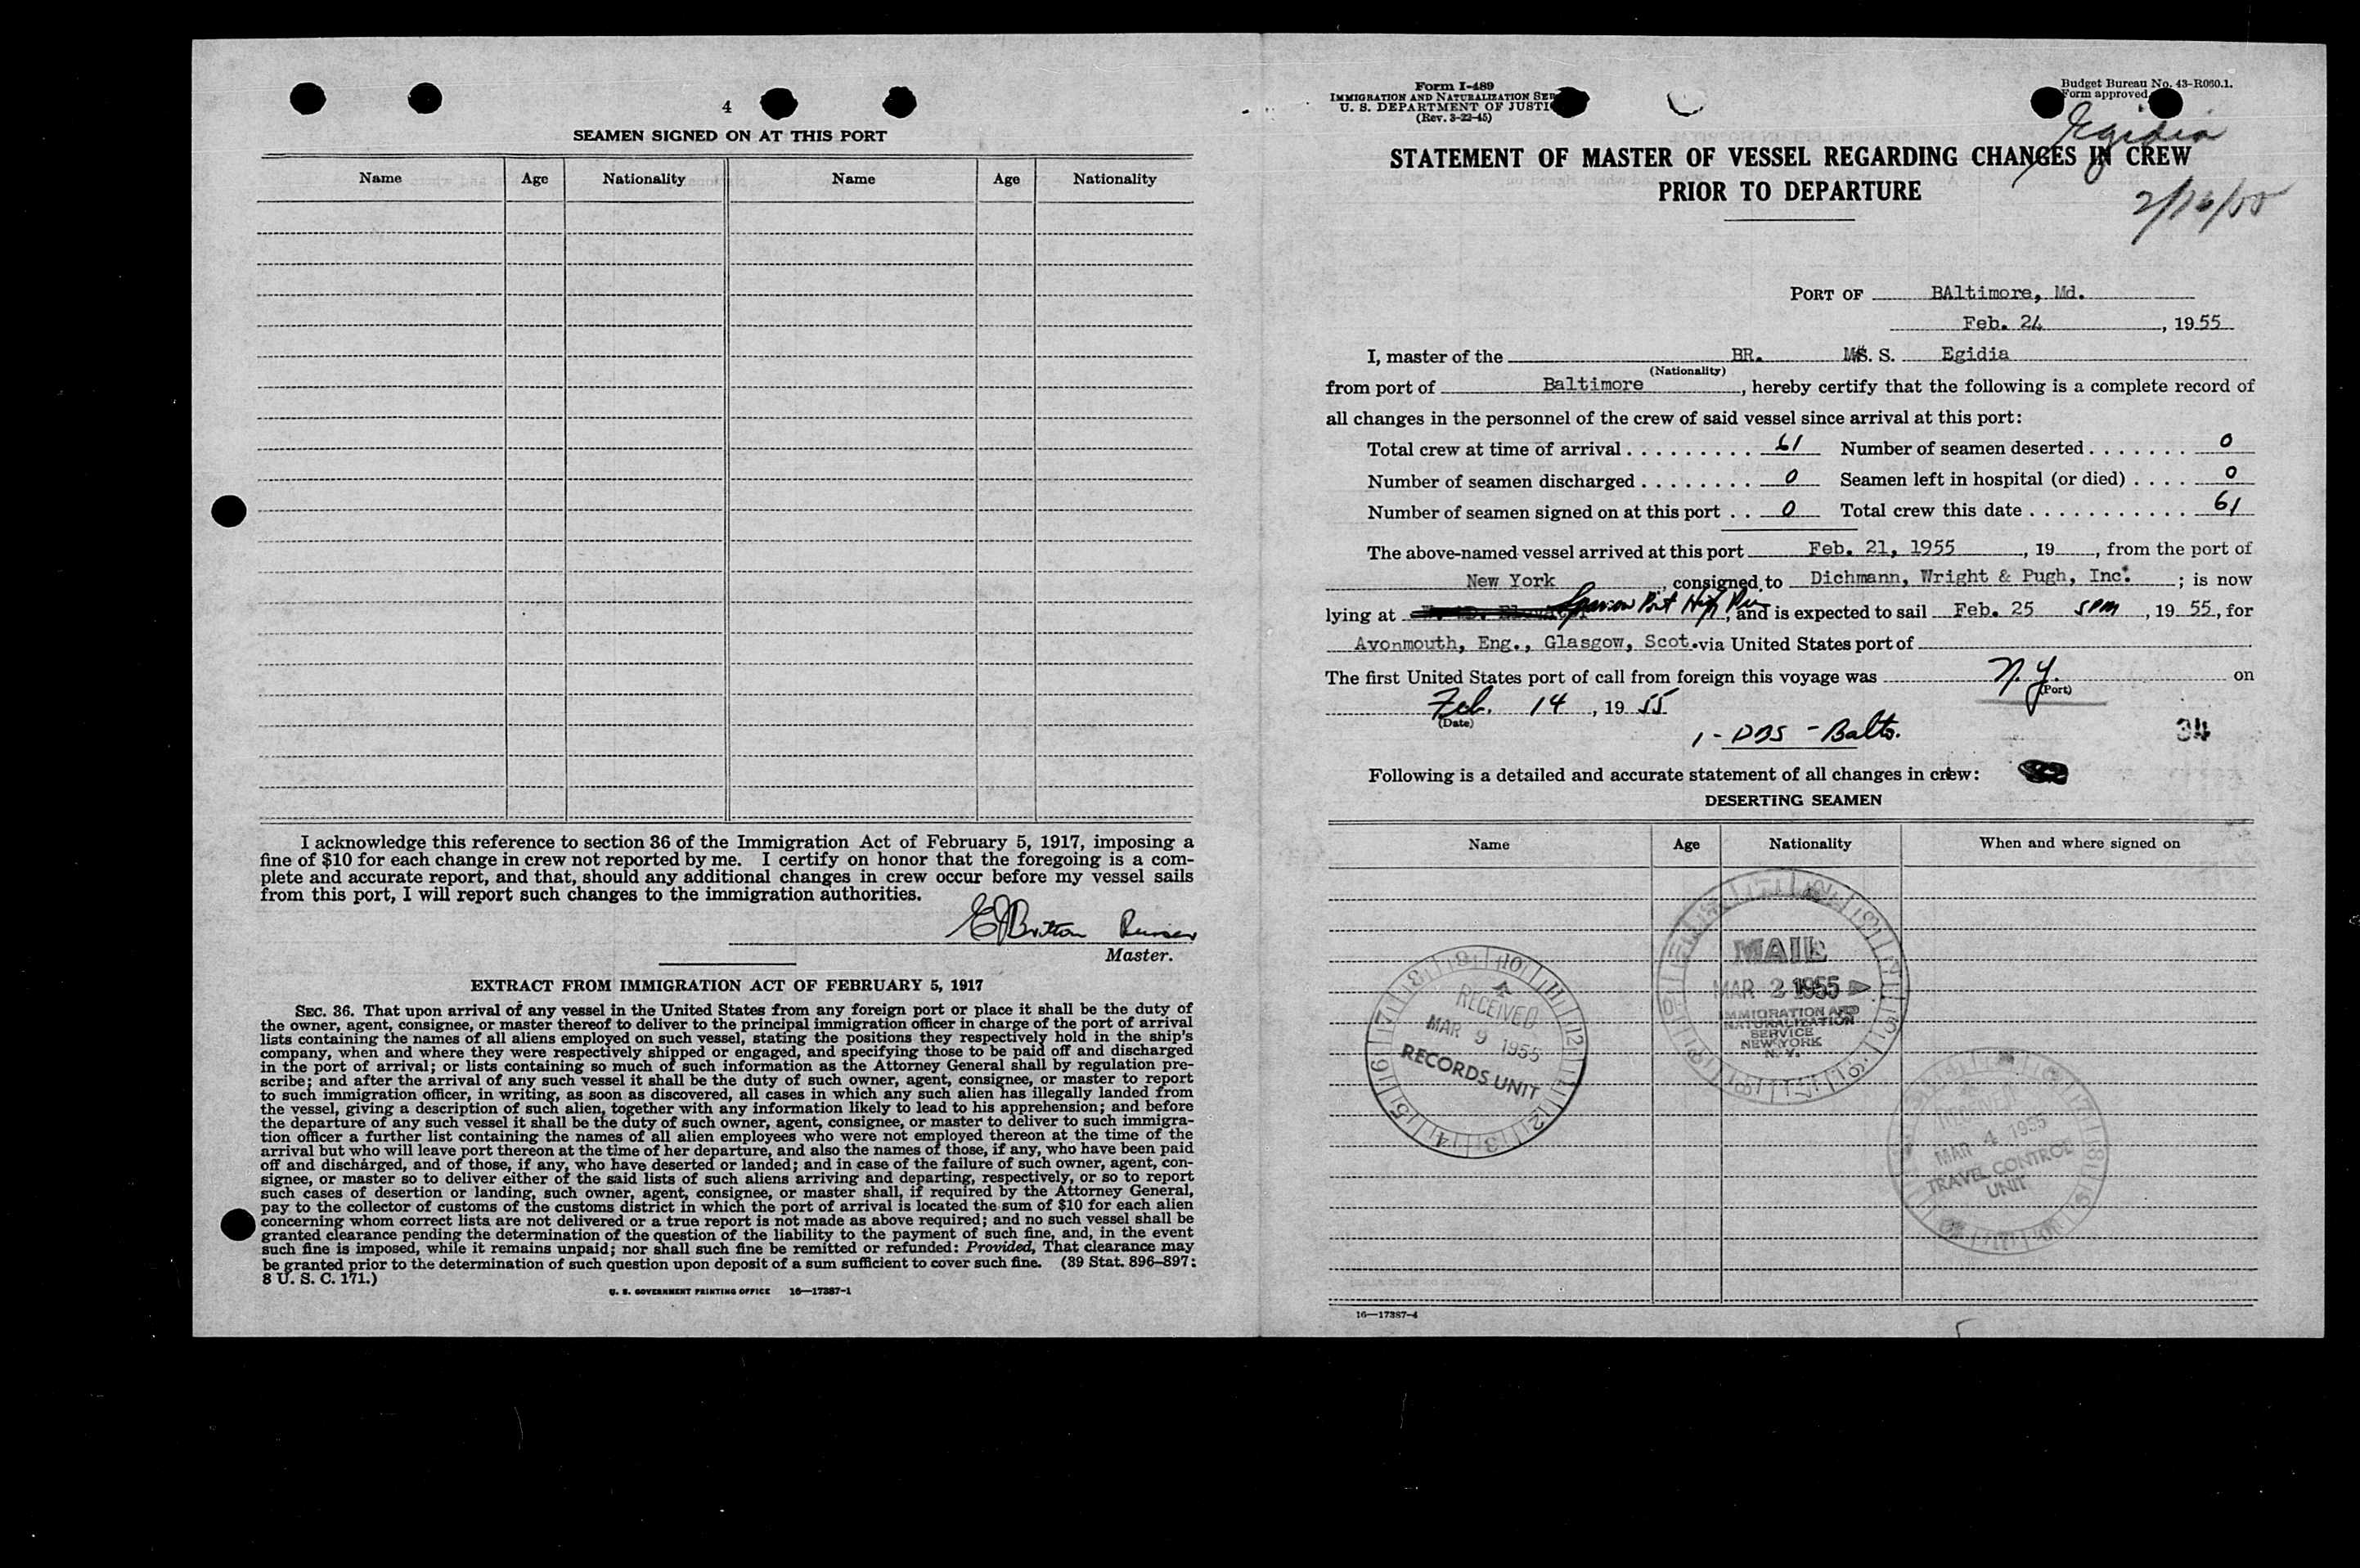 4
SEAMEN SIGNED ON AT THIS PORT
Name Age Nationality Name Age Nationality
I acknowledge this reference to section 36 of the Immigration Act of February 5, 1917, imposing a
fine of $10 for each change in crew not reported by me. I certify on honor that the foregoing is a com-
plete and accurate report, and that, should any additional changes in crew occur before my vessel sails
from this port, I will report such changes to the immigration authorities.
Britton
Master.
EXTRACT FROM IMMIGRATION ACT OF FEBRUARY 5, 1917
SEC. 36. That upon arrival of any vessel in the United States from any foreign port or place it shall be the duty of
the owner, agent, consignee, or master thereof to deliver to the principal immigration officer in charge of the port of arrival
lists containing the names of all aliens employed on such vessel, stating the positions they respectively hold in the ship's
company, when and where they were respectively shipped or engaged, and specifying those to be paid off and discharged
in the port of arrival; or lists containing so much of such information as the Attorney General shall by regulation pre-
scribe; and after the arrival of any such vessel it shall be the duty of such owner, agent, consignee, or master to report
to such immigration officer, in writing, as soon as discovered, all cases in which any such alien has illegally landed from
the vessel, giving a description of such alien, together with any information likely to lead to his apprehension; and before
the departure of any such vessel it shall be the duty of such owner, agent, consignee, or master to deliver to such immigra-
tion officer a further list containing the names of all alien employees who were not employed thereon at the time of the
arrival but who will leave port thereon at the time of her departure, and also the names of those, if any, who have been paid
off and discharged, and of those, if any, who have deserted or landed; and in case of the failure of such owner, agent, con-
signee, or master so to deliver either of the said lists of such aliens arriving and departing, respectively, or so to report
such cases of desertion or landing, such owner, agent, consignee, or master shall, if required by the Attorney General,
pay to the collector of customs of the customs district in which the port of arrival is located the sum of $10 for each alien
concerning whom correct lists are not delivered or a true report is not made as above required; and no such vessel shall be
granted clearance pending the determination of the question of the liability to the payment of such fine, and, in the event
such fine is imposed, while it remains unpaid; nor shall such fine be remitted or refunded: Provided, That clearance may
be granted prior to the determination of such question upon deposit of a sum sufficient to cover such fine. (39 Stat. 896–897;
8 U. S. C. 171.)
U. S. GOVERNMENT PRINTING OFFICE 16—17387-1
Form I-489
IMMIGRATION AND NATURALIZATION SER
U. S. DEPARTMENT OF JUSTI
(Rev. 3-22-45)
Budget Bureau No. 43-R060.1.
Form approved
Egidia
STATEMENT OF MASTER OF VESSEL REGARDING CHANGES IN CREW
PRIOR TO DEPARTURE
2/16/55
PORT OF BAltimore, Md.
Feb. 24, 1955
I, master of the BR. MS. S. Egidia
(Nationality)
from port of Baltimore, hereby certify that the following is a complete record of
all changes in the personnel of the crew of said vessel since arrival at this port:
Total crew at time of arrival . . . . . . . . . 61 Number of seamen deserted . . . . . . . 0
Number of seamen discharged . . . . . . . . 0 Seamen left in hospital (or died) . . . . 0
Number of seamen signed on at this port . . 0 Total crew this date . . . . . . . . . . . 61
The above-named vessel arrived at this port Feb. 21, 1955, 19, from the port of
New York, consigned to Dichmann, Wright & Pugh, Inc.; is now
lying at Sparrow Pnt High Pier, and is expected to sail Feb. 25 5PM, 19 55, for
Avonmouth, Eng., Glasgow, Scot. via United States port of
The first United States port of call from foreign this voyage was N.Y. on
(Port)
Feb. 14, 19 55
(Date)
1 - DBS - Balto.
34
Following is a detailed and accurate statement of all changes in crew:
DESERTING SEAMEN
Name Age Nationality When and where signed on
MAIL
MAR 2 1955
IMMIGRATION AND
NATURALIZATION
SERVICE
NEW YORK
N. Y.
RECEIVED
MAR 9 1955
RECORDS UNIT
MAR 4 1955
TRAVEL CONTROL
UNIT
16—17387-4